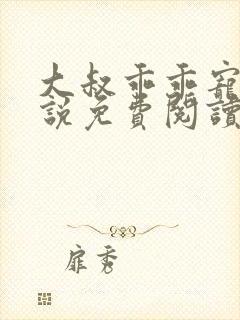 大叔乖乖寵
說免費閱讀
扉秀